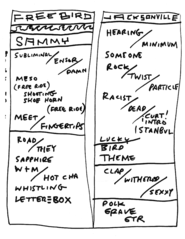 FREE BIRD
SAMMY
SUBLIMINAL
ENSOR
DAMN
MESO
(FREE RIDE)
SHOOTING
SHOE HORN
(FREE RIDE)
MEET
FINGERTIPS
ROAD
THEY
SAPPHIRE
W+M
HOT CHA
WHISTLING
LETTERBOX
JACKSONVILLE
HEARING
MINIMUM
SOMEONE
ROCK
TWIST
PARTICLE
RACIST
DEAD
CURT!
INTRO
ISTANBUL
LUCKY
BIRD
THEME
CLAP
WITHERED
SEXXY
POLK
GRAVE
ETR